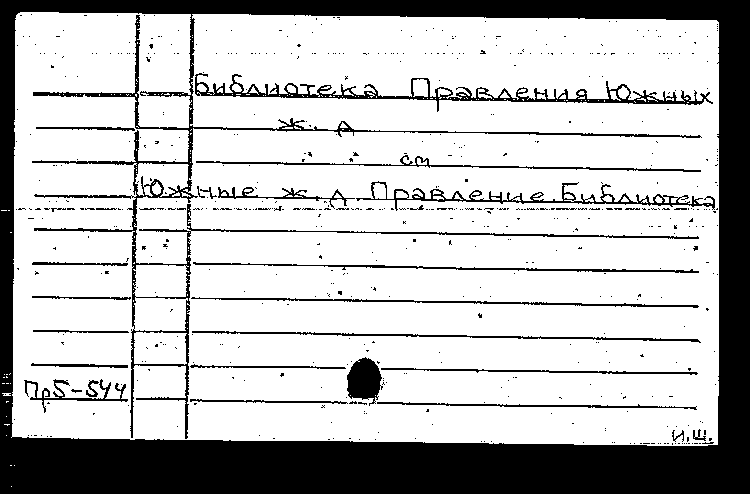 Библиотека Правления Южных
ж. д
см
Южные ж. д Правление. Библиотека
Пр5-544
И.Ш.